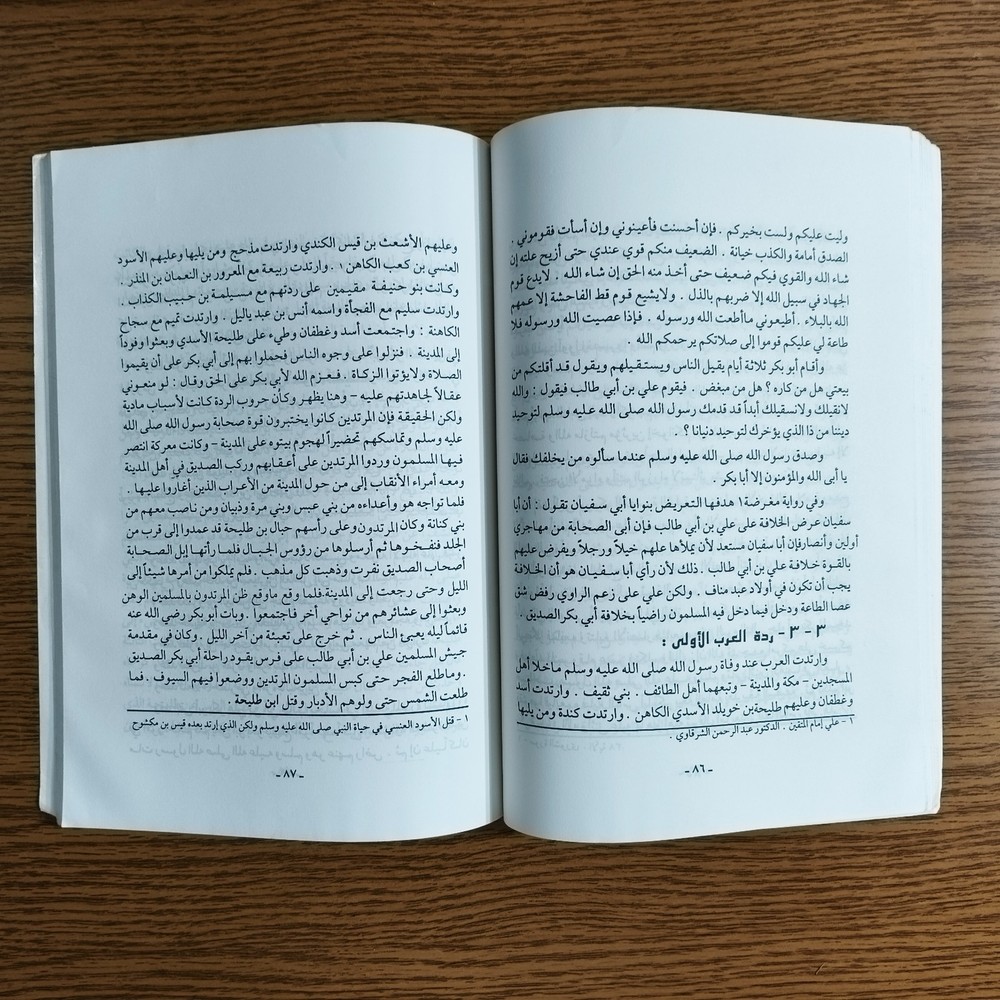 وليت عليكم ولست بخيركم . فإن أحسنت فأعينوني وإن أسأت فقوموني .
الصدق أمامة والكذب خيانة . الضعيف منكم قوي عندي حتى أزيح علته إن
شاء الله والقوي فيكم ضعيف حتى أخذ منه الحق إن شاء الله . لايدع قوم
الجهاد في سبيل الله إلا ضربهم بالذل . ولايشيع قوم قط الفاحشة إلا عمهم
الله بالبلاء . أطيعوني ماأطعت الله ورسوله . فإذا عصيت الله ورسوله فلا
طاعة لي عليكم قوموا إلى صلاتكم يرحمكم الله .
وأقام أبو بكر ثلاثة أيام يقيل الناس ويستقيلهم ويقول قد أقلتكم من
بيعتي هل من كاره ؟ هل من مبغض . فيقوم علي بن أبي طالب فيقول : والله
لانقيلك ولانسقيلك أبداً قد قدمك رسول الله صلى الله عليه وسلم لتوحيد
ديننا من ذا الذي يؤخرك لتوحيد دنيانا ؟ .
وصدق رسول الله صلى الله عليه وسلم عندما سألوه من يخلفك فقال
يا أبى الله والمؤمنون إلا أبا بكر .
وفي رواية مغرضة١ هدفها التعريض بنوايا أبي سفيان تقول : أن أبا
سفيان عرض الخلافة على علي بن أبي طالب فإن أبى الصحابة من مهاجري
أولين وأنصارفإن أبا سفيان مستعد لأن يملأها علهم خيلاً ورجلاً ويفرض عليهم
بالقوة خلافة علي بن أبي طالب . ذلك لأن رأي أبا سفيان هو أن الخلافة
يجب أن تكون في أولاد عبد مناف . ولكن علي على زعم الراوي رفض شق
عصا الطاعة ودخل فيما دخل فيه المسلمون راضياً بخلافة أبي بكر الصديق .
٣ - ٣ - ردة العرب الأولى :
وارتدت العرب عند وفاة رسول الله صلى الله عليه وسلم ماخلا أهل
المسجدين - مكة والمدينة - وتبعهما أهل الطائف . بني ثقيف . وارتدت أسد
وغطفان وعليهم طليحةبن خويلد الأسدي الكاهن . وارتدت كندة ومن يليها
١ - علي إمام المتقين . الدكتور عبد الرحمن الشرقاوي .
ـ ٨٦ ـ
وعليهم الأشعث بن قيس الكندي وارتدت مذحج ومن يليها وعليهم الأسود
العنسي بن كعب الكاهن ١ . وارتدت ربيعة مع المعرور بن النعمان بن المنذر .
وكانت بنو حنيفة مقيمين على ردتهم مع مسيلمة بن حبيب الكذاب .
وارتدت سليم مع الفجأة واسمه أنس بن عبد ياليل . وارتدت تميم مع سجاح
الكاهنة : واجتمعت أسد وغطفان وطيء على طليحة الأسدي وبعثوا وفوداً
إلى المدينة . فنزلوا على وجوه الناس فحملوا بهم إلى أبي بكر على أن يقيموا
الصلاة ولايؤتوا الزكاة . فعزم الله لأبي بكر على الحق وقال : لو منعوني
عقالاً لجاهدتهم عليه - وهنا يظهر وكأن حروب الردة كانت لأسباب مادية
ولكن الحقيقة فإن المرتدين كانوا يختبرون قوة صحابة رسول الله صلى الله
عليه وسلم وتماسكهم تحضيراً لهجوم بيتوه على المدينة - وكانت معركة انتصر
فيها المسلمون وردوا المرتدين على أعقابهم وركب الصديق في أهل المدينة
ومعه أمراء الأنقاب إلى من حول المدينة من الأعراب الذين أغاروا عليها .
فلما تواجه هو وأعداءه من بني عبس وبني مرة وذبيان ومن ناصب معهم من
بني كنانة وكان المرتدون وعلى رأسهم حبال بن طليحة قد عمدوا إلى قرب من
الجلد فنفخوها ثم أرسلوها من رؤوس الجبال فلما رأتها إبل الصحابة
أصحاب الصديق نفرت وذهبت كل مذهب . فلم يملكوا من أمرها شيئاً إلى
الليل وحتى رجعت إلى المدينة.فلما وقع ماوقع ظن المرتدون بالمسلمين الوهن
وبعثوا إلى عشائرهم من نواحي أخر فاجتمعوا . وبات أبو بكر رضي الله عنه
قائماً ليله يعبئ الناس . ثم خرج على تعبئة من آخر الليل . وكان في مقدمة
جيش المسلمين علي بن أبي طالب على فرس يقود راحلة أبي بكر الصديق
. وماطلع الفجر حتى كبس المسلمون المرتدين ووضعوا فيهم السيوف . فما
طلعت الشمس حتى ولوهم الأدبار وقتل ابن طليحة .
١ - قتل الأسود العنسي في حياة النبي صلى الله عليه وسلم ولكن الذي إرتد بعده قيس بن مكشوح
ـ ٨٧ ـ